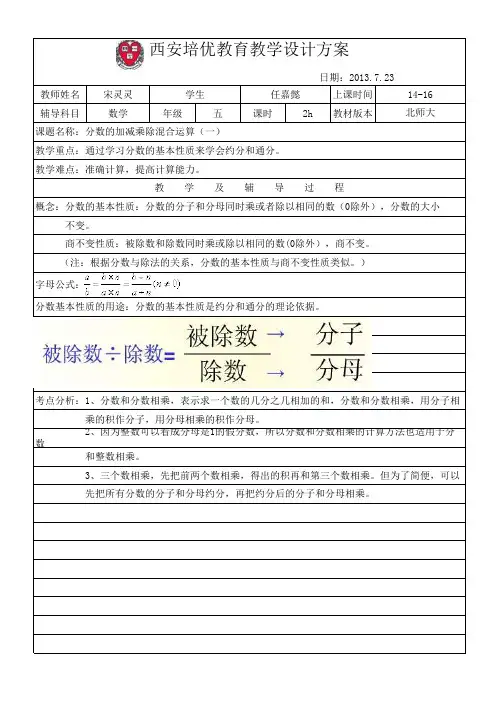 西安培优教育教学设计方案
日期：2013.7.23
教师姓名 宋灵灵 学生 任嘉懿 上课时间 14-16
辅导科目 数学 年级 五 课时 2h 教材版本 北师大
课题名称：分数的加减乘除混合运算（一）
教学重点：通过学习分数的基本性质来学会约分和通分。
教学难点：准确计算，提高计算能力。
教 学 及 辅 导 过 程
概念：分数的基本性质：分数的分子和分母同时乘或者除以相同的数（0除外），分数的大小
不变。
商不变性质：被除数和除数同时乘或除以相同的数(0除外），商不变。
（注：根据分数与除法的关系，分数的基本性质与商不变性质类似。）
字母公式：a/b = b×n/a×n = b÷n/a÷n (n≠0)
分数基本性质的用途：分数的基本性质是约分和通分的理论依据。
被除数 → 分子
被除数÷除数=
除数 → 分母
考点分析：1、分数和分数相乘，表示求一个数的几分之几相加的和，分数和分数相乘，用分子相
乘的积作分子，用分母相乘的积作分母。
2、因为整数可以看成分母是1的假分数，所以分数和分数相乘的计算方法也适用于分
数
和整数相乘。
3、三个数相乘，先把前两个数相乘，得出的积再和第三个数相乘。但为了简便，可以
先把所有分数的分子和分母约分，再把约分后的分子和分母相乘。